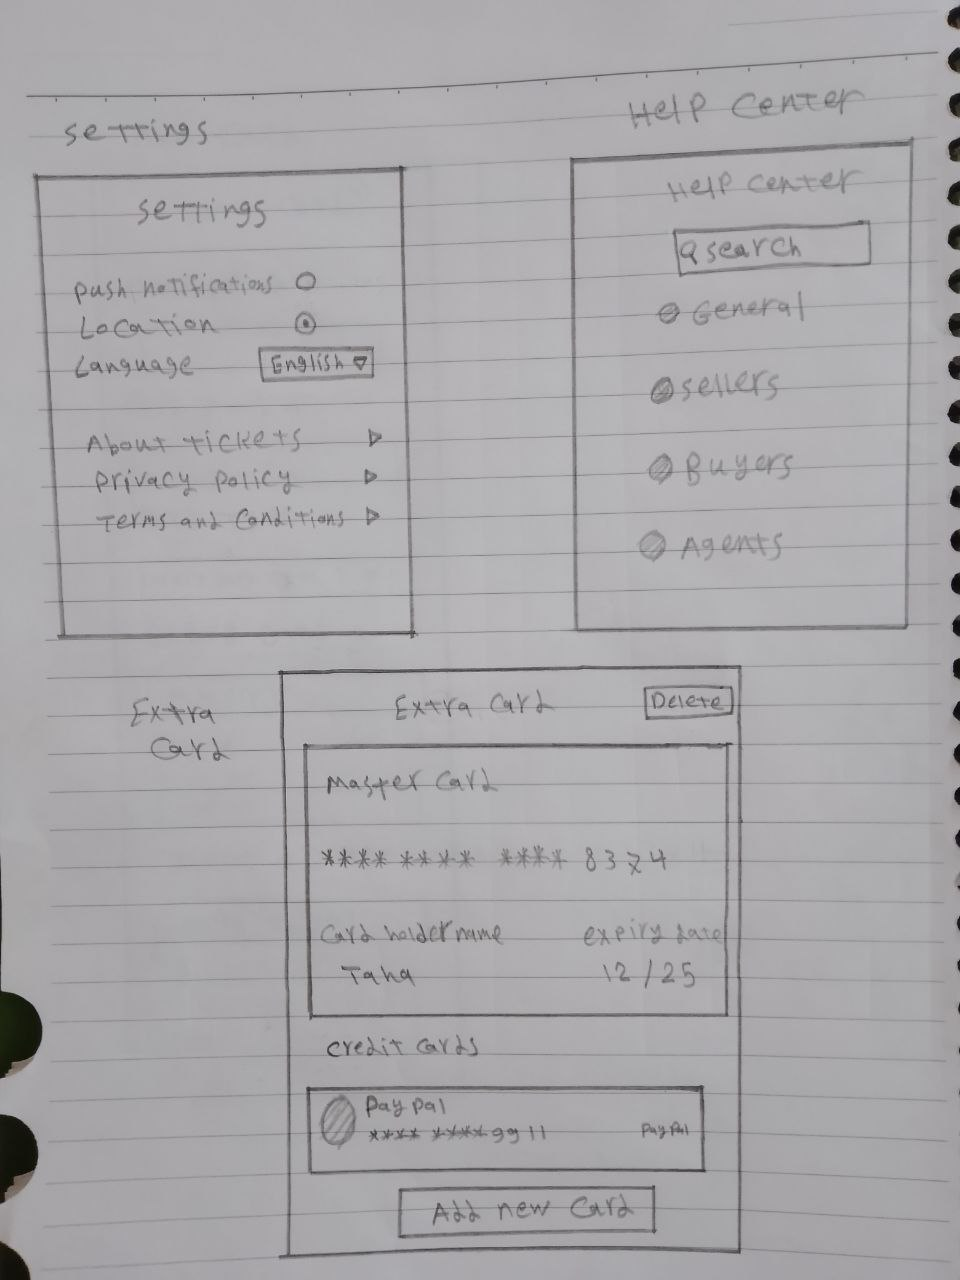 Settings
Settings
Push notifications
Location
Language English
About tickets
Privacy Policy
Terms and Conditions
Help Center
Help Center
search
General
Sellers
Buyers
Agents
Extra
Card
Extra Card Delete
Master Card
**** **** **** 8374
Card holder name expiry date
Taha 12/25
credit cards
PayPal
**** ****9911 PayPal
Add new Card